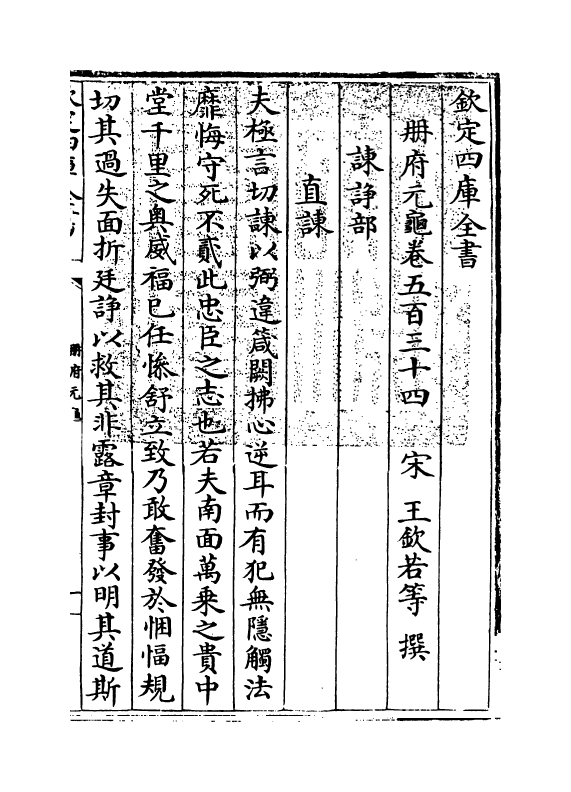 欽定四庫全書
册府元龜卷五百三十四　宋　王欽若等　撰
諫諍部
直諫
夫極言切諫以弼違箴闕拂心逆耳而有犯無隱觸法
靡悔守死不貳此忠臣之志也若夫南面萬乗之貴中
堂千里之奥威福已任慘舒立致乃敢奮發於悃愊規
切其過失面折廷諍以救其非露章封事以明其道斯
册府元
一